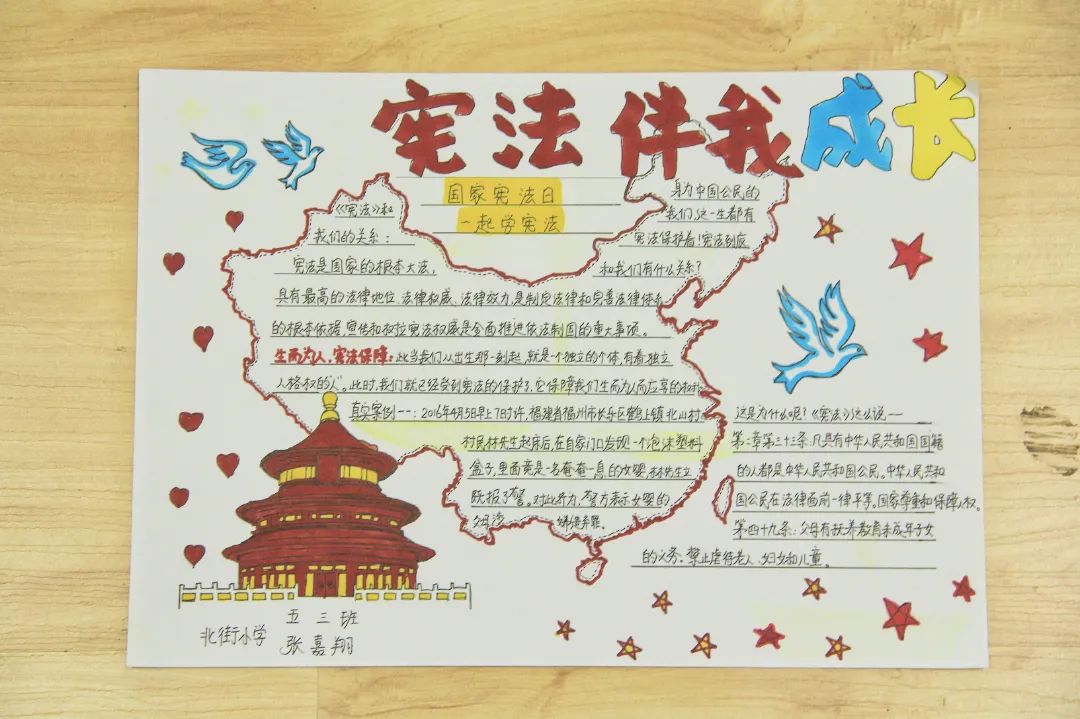 宪法伴我成长
国家宪法日
一起学宪法
《宪法》和
我们的关系：
宪法是国家的根本大法，
具有最高的法律地位、法律权威、法律效力，是制定法律和完善法律体系
的根本依据，宣传和权拉宪法权威是全面推进依法制国的重大事项。
生而为人，宪法保障：此当我们从出生那一刻起，就是一个独立的个体，有着独立
人格权的"人"。此时，我们就已经受到宪法的保护了，它保障我们生而为人而应享的权利。
真实案例一：2016年4月5日早上7时许，福建省福州市长乐区鹤上镇北山村
村民林先生起床后，在自家门口发现一个泡沫塑料
盒子，里面竟是一名奄奄一息的女婴，林先生立
既报了警。对此行为，警方表示女婴的
父母涉嫌遗弃罪。
身为中国公民的
我们，这一生都有
宪法保护着！宪法到底
和我们有什么关系？
这是为什么呢？《宪法》这么说——
第二章第三十三条：凡具有中华人民共和国国籍
的人都是中华人民共和国公民。中华人民共和
国公民在法律面前一律平等。国家尊重和保障人权。
第四十九条：父母有扶养教育未成年子女
的义务。禁止虐待老人、妇女和儿童。
五三班
北街小学 张嘉翔